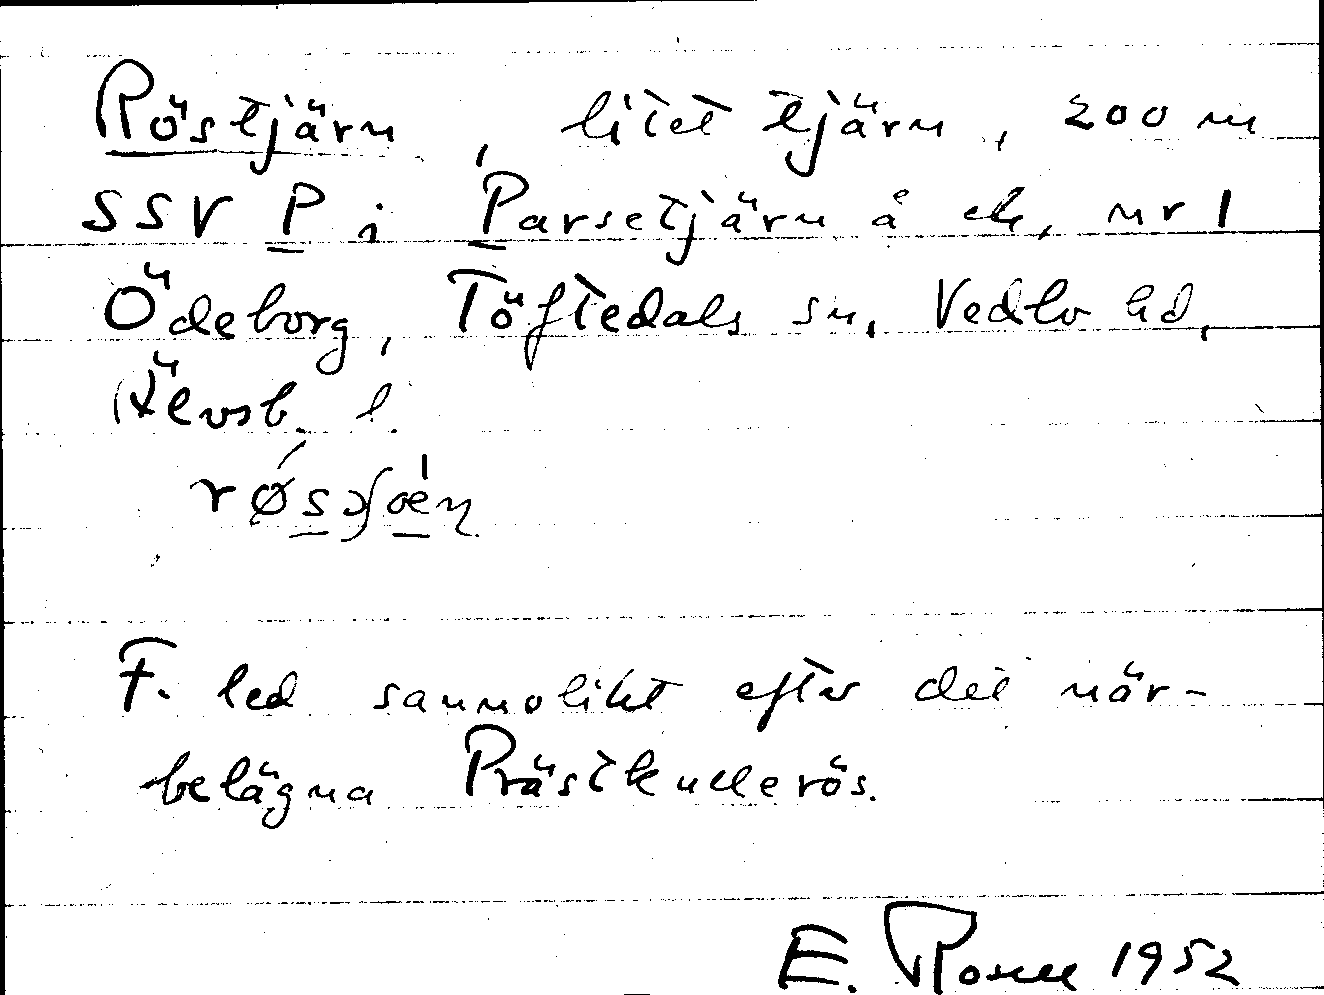 Röstjärn, litet tjärn, 200 m
SSV P i Parsetjärn å ek. nr 1
Ödeborg, Töftedals sn, Vedbo hd,
Älvsb. l.
F. led sannolikt efter det när-
belägna Prästkullerös.
E. Rosell 1952